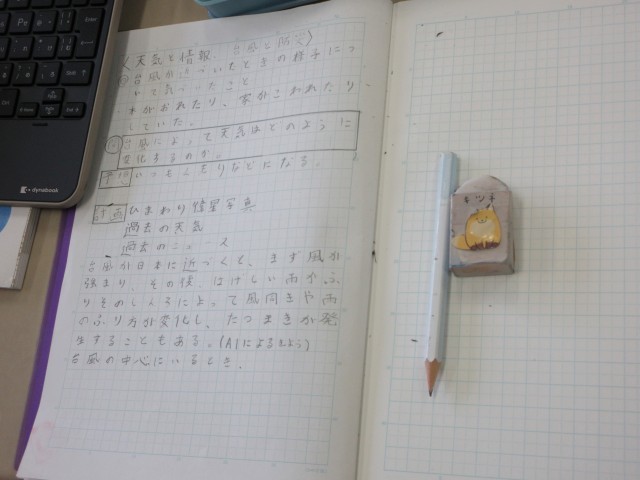 〈天気と情報 台風と防災〉
台風が近づいたときの様子につ
いて気づいたこと
木がおれたり、家がこわれたり
していた。
問 台風によって天気はどのように
変化するのか。
予想
などになる。
計画 ひまわり 写真
過去の天気
過去のニュース
台風が日本に近づくと、まず風が
強まり、その後、はげしい雨がふ
り によって風向きや雨
のふり方が変化し、たつまきが発
生することもある。(AIによると)
台風の中心にいるとき、
キツネ
dynabook